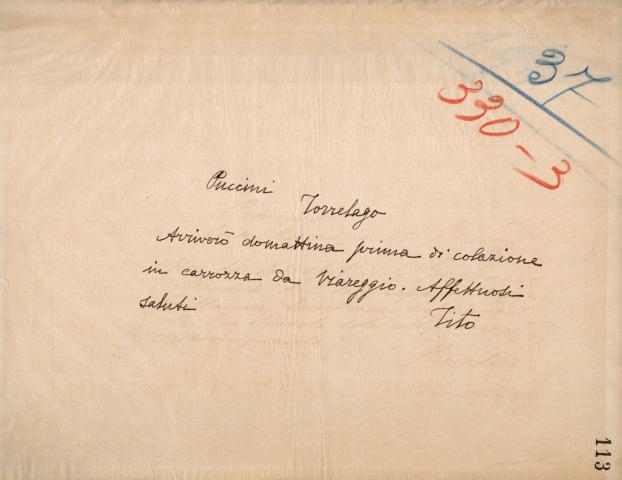 37
330-3
Puccini Torrelago
Arriverò domattina prima di colazione
in carrozza da Viareggio. Affettuosi
saluti Tito
113